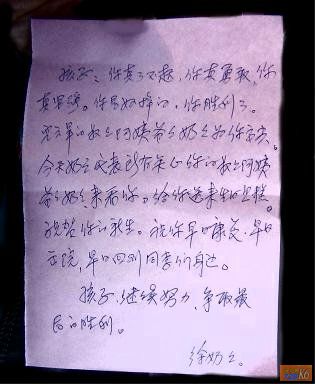 孩子:你真了不起,你真勇敢,你
真坚强。你是好样的,你胜利了。
的叔叔阿姨爷爷奶奶为你高兴。
今天奶奶代表所有关心你的叔叔阿姨
爷爷奶奶来看你。给你送来生日蛋糕。
祝贺你的新生。祝你早日康复,早日
出院,早日回到同学们身边。
孩子,继续努力,争取最
后的胜利。
徐奶奶。